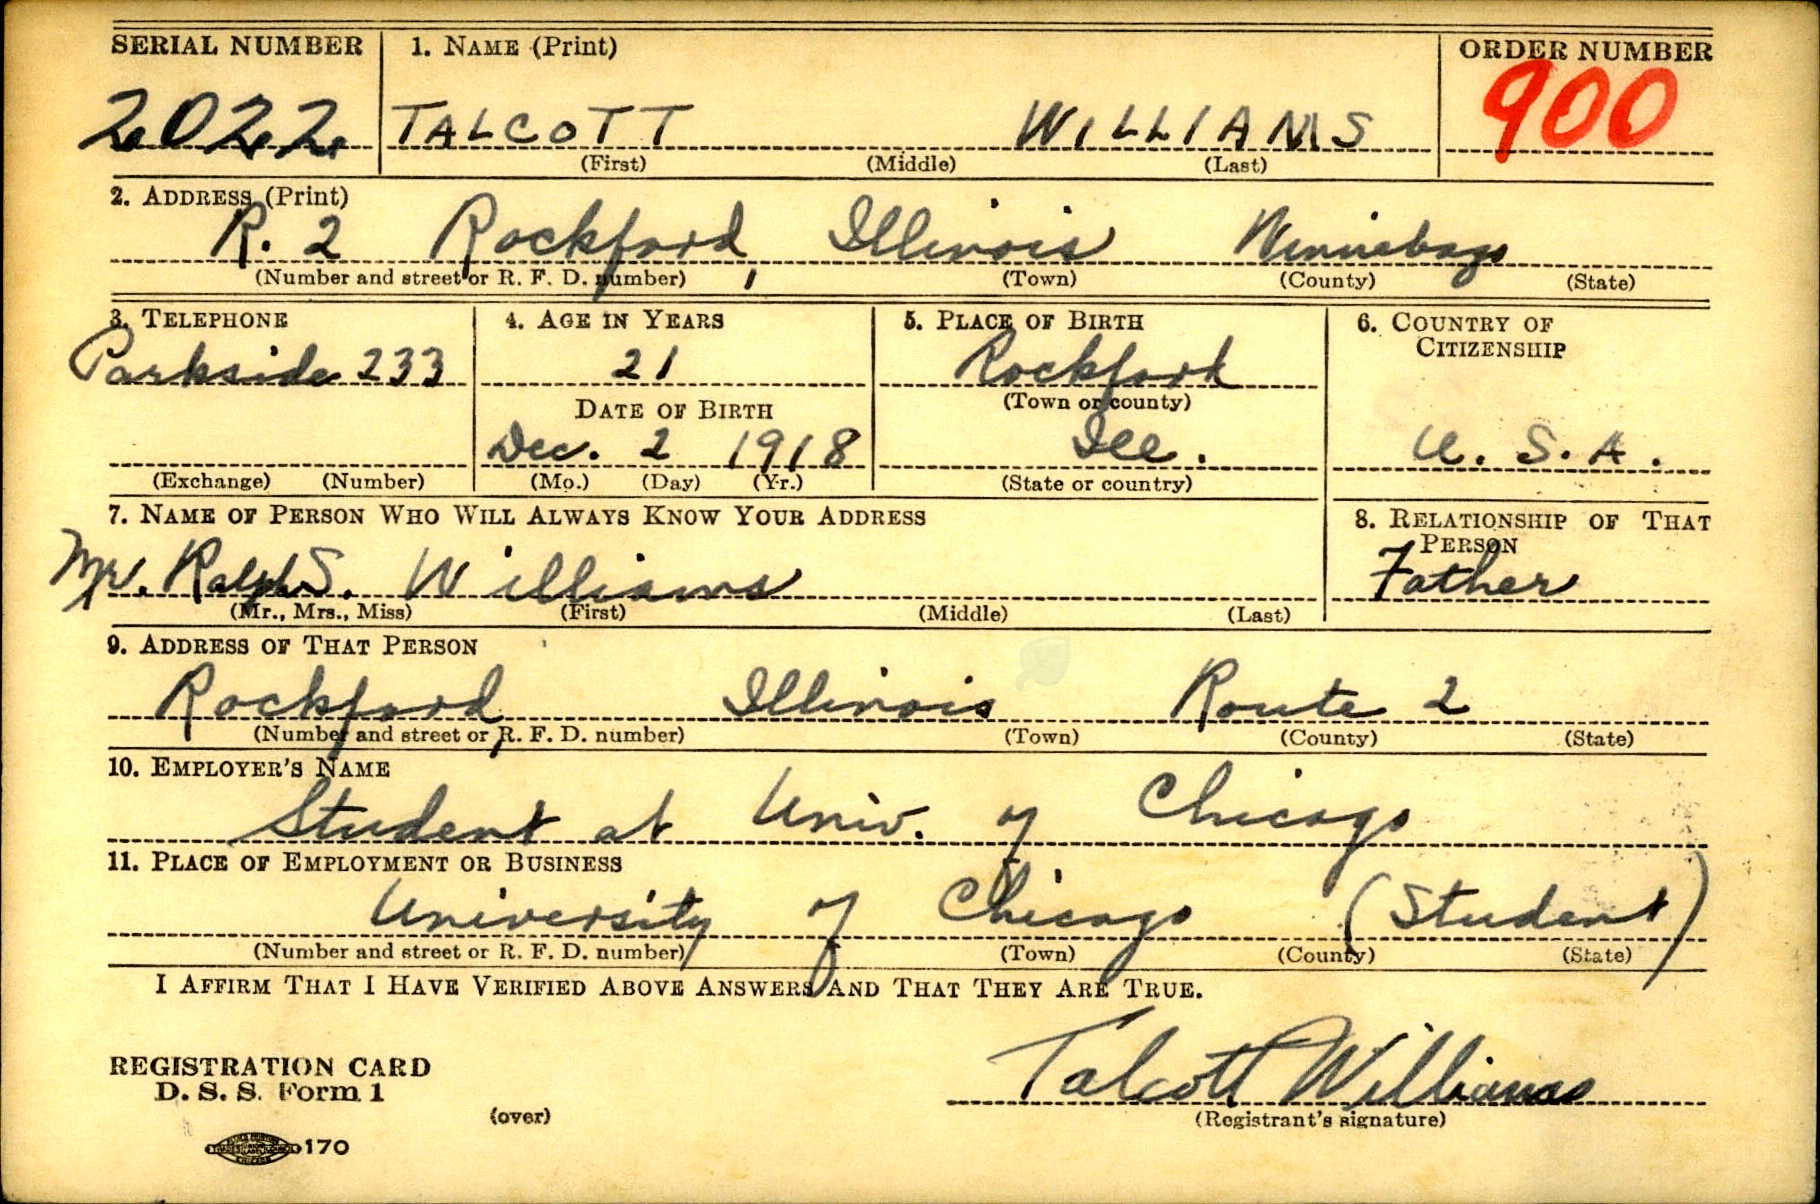 SERIAL NUMBER 1. NAME (Print) ORDER NUMBER
2022 TALCOTT WILLIAMS 900
(First) (Middle) (Last)
2. ADDRESS (Print)
R. 2 Rockford, Illinois Winnebago
(Number and street or R. F. D. number) (Town) (County) (State)
3. TELEPHONE 4. AGE IN YEARS 5. PLACE OF BIRTH 6. COUNTRY OF
CITIZENSHIP
Parkside 233 21 Rockford
DATE OF BIRTH (Town or county)
Dec. 2 1918 Ill. U. S. A.
(Exchange) (Number) (Mo.) (Day) (Yr.) (State or country)
7. NAME OF PERSON WHO WILL ALWAYS KNOW YOUR ADDRESS 8. RELATIONSHIP OF THAT
PERSON
Mr. Ralph S. Williams Father
(Mr., Mrs., Miss) (First) (Middle) (Last)
9. ADDRESS OF THAT PERSON
Rockford, Illinois Route 2
(Number and street or R. F. D. number) (Town) (County) (State)
10. EMPLOYER'S NAME
Student at Univ. of Chicago
11. PLACE OF EMPLOYMENT OR BUSINESS
University of Chicago (Student)
(Number and street or R. F. D. number) (Town) (County) (State)
I AFFIRM THAT I HAVE VERIFIED ABOVE ANSWERS AND THAT THEY ARE TRUE.
REGISTRATION CARD
D. S. S. Form 1
Talcott Williams
(over) (Registrant's signature)
170